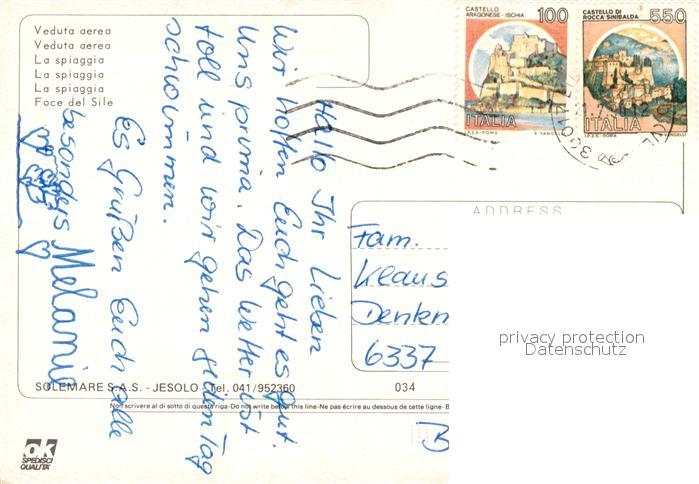 Veduta aerea
Veduta aerea
La spiaggia
La spiaggia
La spiaggia
Foce del Sile
CASTELLO
ARAGONESE - ISCHIA
100
ITALIA
I.P.Z.S. - ROMA
CASTELLO DI
ROCCA SINIBALDA
550
ITALIA
I.P.Z.S. - ROMA
Hallo Ihr Lieben
Wir hoffen Euch geht es gut.
Uns prima. Das Wetter ist
toll und wir gehen jeden Tag
schwimmen.
Es Grüßen Euch alle
besonders Melanie
ADDRESS
Fam.
Klaus
Denken
6337
privacy protection
Datenschutz
SOLEMARE S.A.S. - JESOLO - Tel. 041/952360
034
Non scrivere al di sotto di questa riga - Do not write below this line - Ne pas écrire au dessous de cette ligne - B
ok
SPEDISCI
QUALITÀ